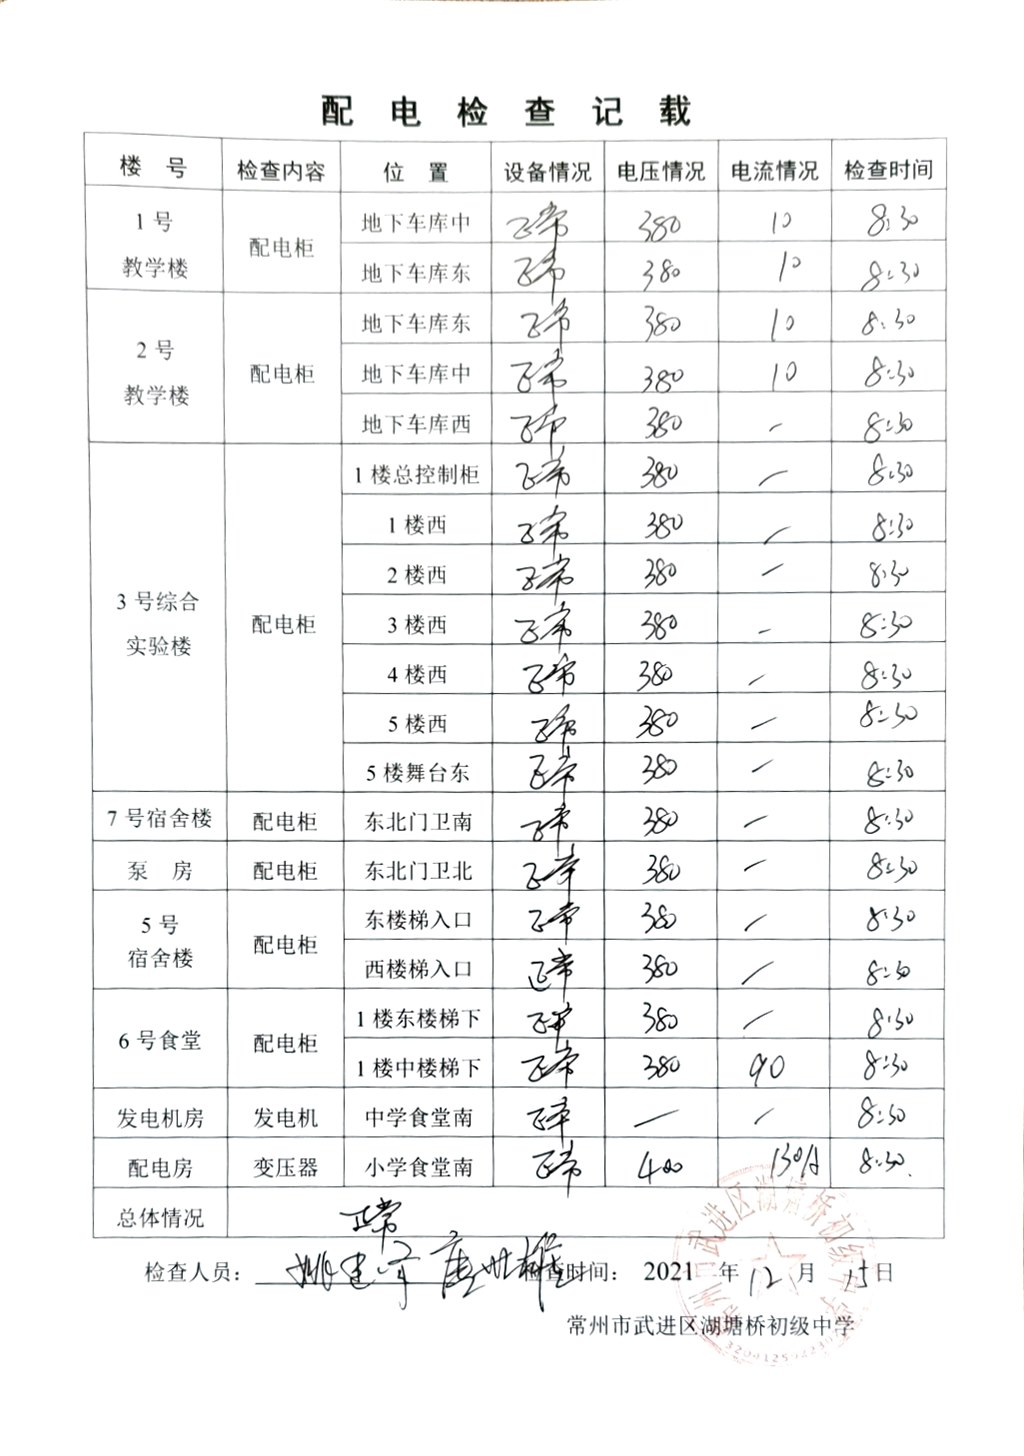 配 电 检 查 记 载
楼 号 检查内容 位 置 设备情况 电压情况 电流情况 检查时间
1 号 教学楼 配电柜 地下车库中 正常 380 10 8:30
地下车库东 正常 380 10 8:30
2 号 教学楼 配电柜 地下车库东 正常 380 10 8:30
地下车库中 正常 380 10 8:30
地下车库西 正常 380 - 8:30
3 号综合 实验楼 配电柜 1 楼总控制柜 正常 380 - 8:30
1 楼西 正常 380 - 8:30
2 楼西 正常 380 - 8:30
3 楼西 正常 380 - 8:30
4 楼西 正常 380 - 8:30
5 楼西 正常 380 - 8:30
5 楼舞台东 正常 380 - 8:30
7 号宿舍楼 配电柜 东北门卫南 正常 380 - 8:30
泵 房 配电柜 东北门卫北 正常 380 - 8:30
5 号 宿舍楼 配电柜 东楼梯入口 正常 380 - 8:30
西楼梯入口 正常 380 - 8:30
6 号食堂 配电柜 1 楼东楼梯下 正常 380 - 8:30
1 楼中楼梯下 正常 380 90 8:30
发电机房 发电机 中学食堂南 正常 - - 8:30
配电房 变压器 小学食堂南 正常 400 130A 8:30
总体情况 正常
检查人员： 检查时间： 2021 年 12 月 15 日
常州市武进区湖塘桥初级中学